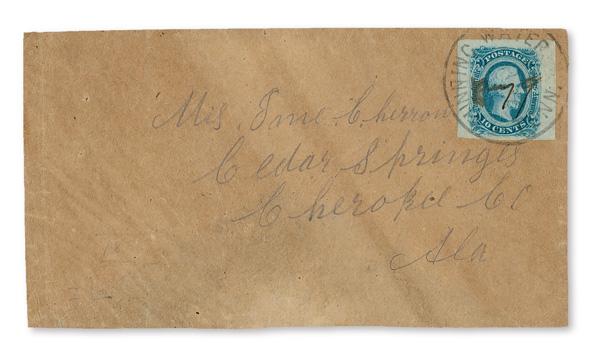 NNING WATER
NN
POSTAGE
TEN CENTS
Mis. Cherron
Cedar Springs
Cherokee Co
Ala